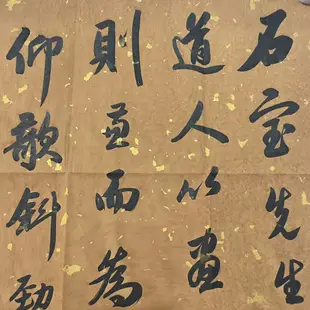 石室先生
道人以畫
則兼而為
仰欹斜勁